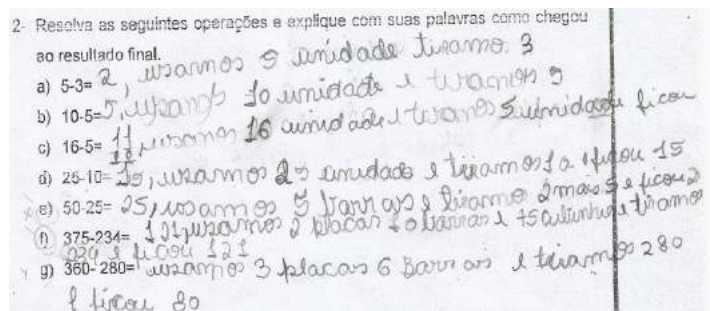 2- Resolva as seguintes operações e explique com suas palavras como chegou
ao resultado final.
a) 5-3= 2, usamos 5 unidade tiramo. 3
b) 10-5= 5, usamos 10 unidade e tiramos 5
c) 16-5= 11 usamos 16 unidade e tiramos 5 ficou
d) 25-10= 15, usamos 25 unidade e tiramos 1 a ficou 15
e) 50-25= 25, usamos 5 barras e tiramo 2 mais 5 e ficou 2
f) 375-234= usamos placas barras e tiramos
e ficou 121
g) 360-280= usamos 3 placas 6 Barras e tiramos 280
e ficou 80